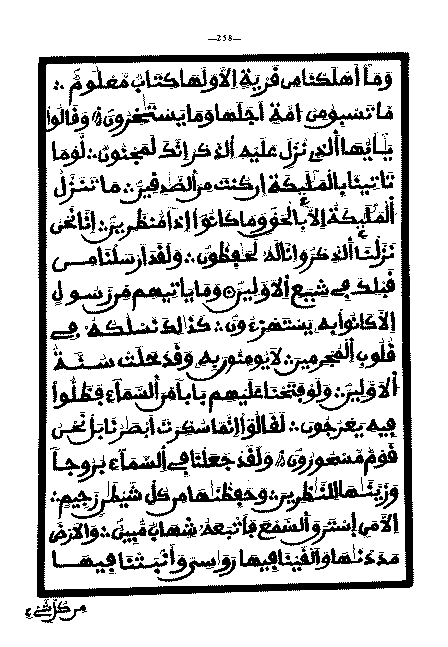 —258—
وَمَآ أَهْلَكْنَا مِن قَرْيَةٍ إِلَّا وَلَهَا كِتَابٌ مَّعْلُومٌ ∴
مَّا تَسْبِقُ مِنْ أُمَّةٍ أَجَلَهَا وَمَا يَسْتَـْٔخِرُونَ وَقَالُوا
يَٰأَيُّهَا ٱلَّذِي نُزِّلَ عَلَيْهِ ٱلذِّكْرُ إِنَّكَ لَمَجْنُونٌ ∴ لَّوْمَا
تَاتِينَا بِالْمَلَٰٓئِكَةِ إِن كُنتَ مِنَ ٱلصَّٰدِقِينَ ∴ مَا تَنَزَّلُ
ٱلْمَلَٰٓئِكَةُ إِلَّا بِالْحَقِّ وَمَا كَانُوٓا إِذًا مُّنظَرِينَ ∴ إِنَّا نَحْنُ
نَزَّلْنَا ٱلذِّكْرَ وَإِنَّا لَهُۥ لَحَٰفِظُونَ ∴ وَلَقَدْ أَرْسَلْنَا مِن
قَبْلِكَ فِي شِيَعِ ٱلْأَوَّلِينَ وَمَا يَاتِيهِم مِّن رَّسُولٍ
إِلَّا كَانُوا بِهِۦ يَسْتَهْزِءُونَ ∴ كَذَٰلِكَ نَسْلُكُهُۥ فِي
قُلُوبِ ٱلْمُجْرِمِينَ ∴ لَا يُومِنُونَ بِهِۦ وَقَدْ خَلَتْ سُنَّةُ
ٱلْأَوَّلِينَ ∴ وَلَوْ فَتَحْنَا عَلَيْهِم بَابًا مِّنَ ٱلسَّمَآءِ فَظَلُّوا
فِيهِ يَعْرُجُونَ ∴ لَقَالُوٓا إِنَّمَا سُكِّرَتْ أَبْصَٰرُنَا بَلْ نَحْنُ
قَوْمٌ مَّسْحُورُونَ وَلَقَدْ جَعَلْنَا فِي ٱلسَّمَآءِ بُرُوجًا
وَزَيَّنَّٰهَا لِلنَّٰظِرِينَ ∴ وَحَفِظْنَٰهَا مِن كُلِّ شَيْطَٰنٍ رَّجِيمٍ ∴
إِلَّا مَنِ ٱسْتَرَقَ ٱلسَّمْعَ فَأَتْبَعَهُۥ شِهَابٌ مُّبِينٌ ∴ وَٱلْأَرْضَ
مَدَدْنَٰهَا وَأَلْقَيْنَا فِيهَا رَوَٰسِيَ وَأَنۢبَتْنَا فِيهَا
مِن كُلِّ شَيْءٍ